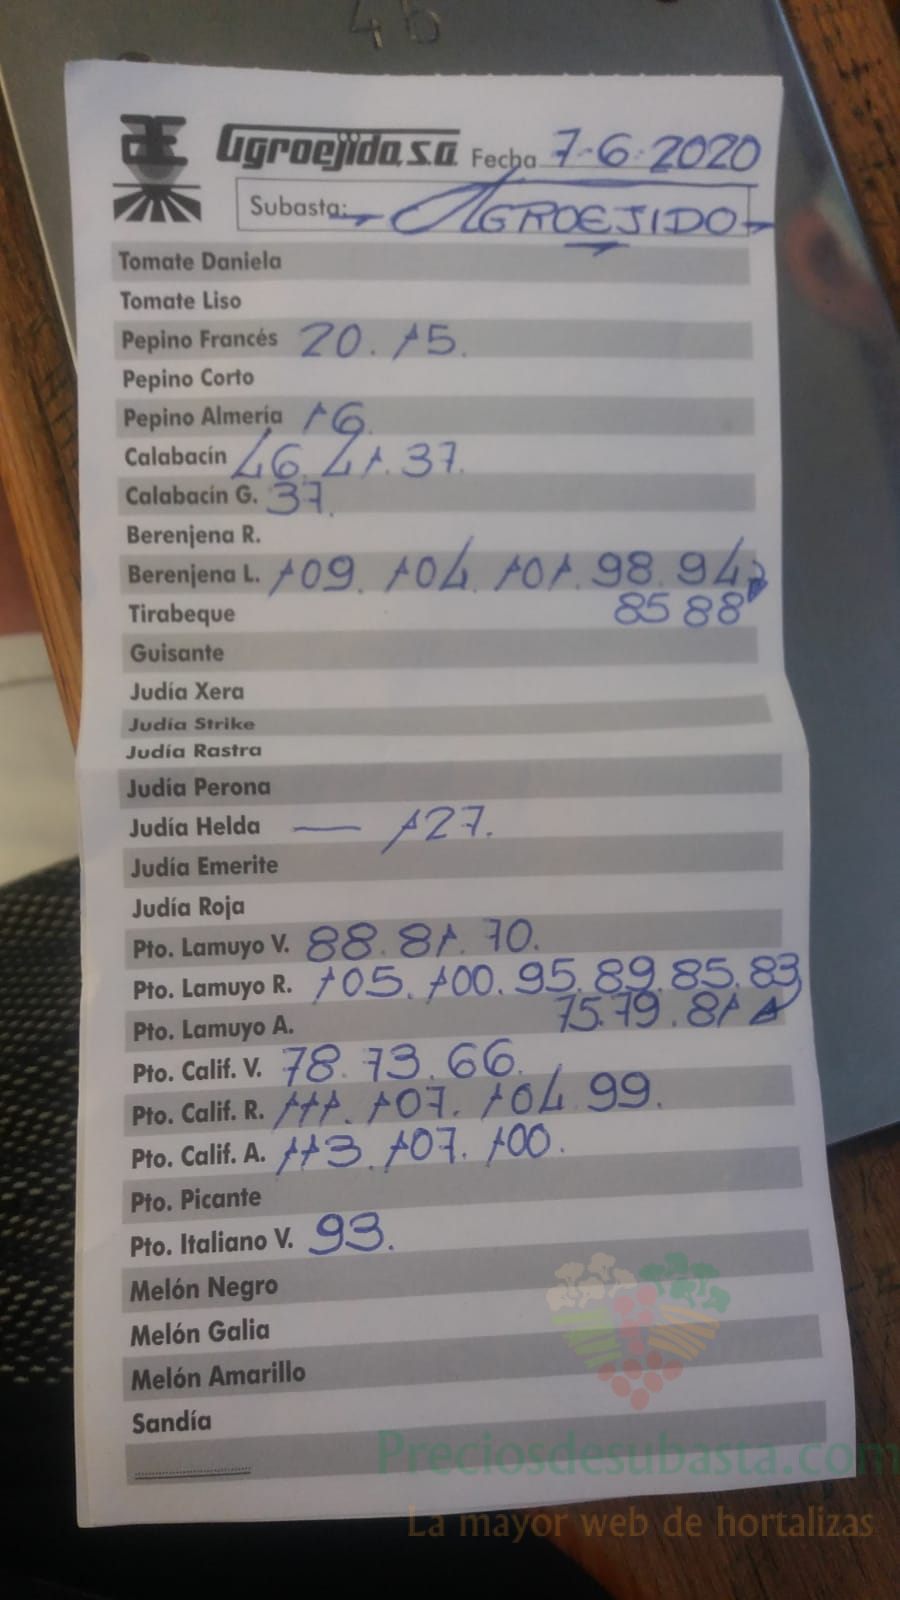 46
Agroejido, S.A. Fecha 7-6-2020
Subasta: AGROEJIDO
Tomate Daniela
Tomate Liso
Pepino Francés 20. 15.
Pepino Corto
Pepino Almería 16.
Calabacín 46. 41. 37.
Calabacín G. 37.
Berenjena R.
Berenjena L. 109. 104. 101. 98. 94
Tirabeque 85 88
Guisante
Judía Xera
Judía Strike
Judía Rastra
Judía Perona
Judía Helda — 127.
Judía Emerite
Judía Roja
Pto. Lamuyo V. 88. 81. 70.
Pto. Lamuyo R. 105. 100. 95. 89. 85. 83
Pto. Lamuyo A. 75. 79. 81
Pto. Calif. V. 78. 73. 66.
Pto. Calif. R. 111. 107. 104. 99.
Pto. Calif. A. 113. 107. 100.
Pto. Picante
Pto. Italiano V. 93.
Melón Negro
Melón Galia
Melón Amarillo
Sandía
Preciosdesubasta.com
La mayor web de hortalizas